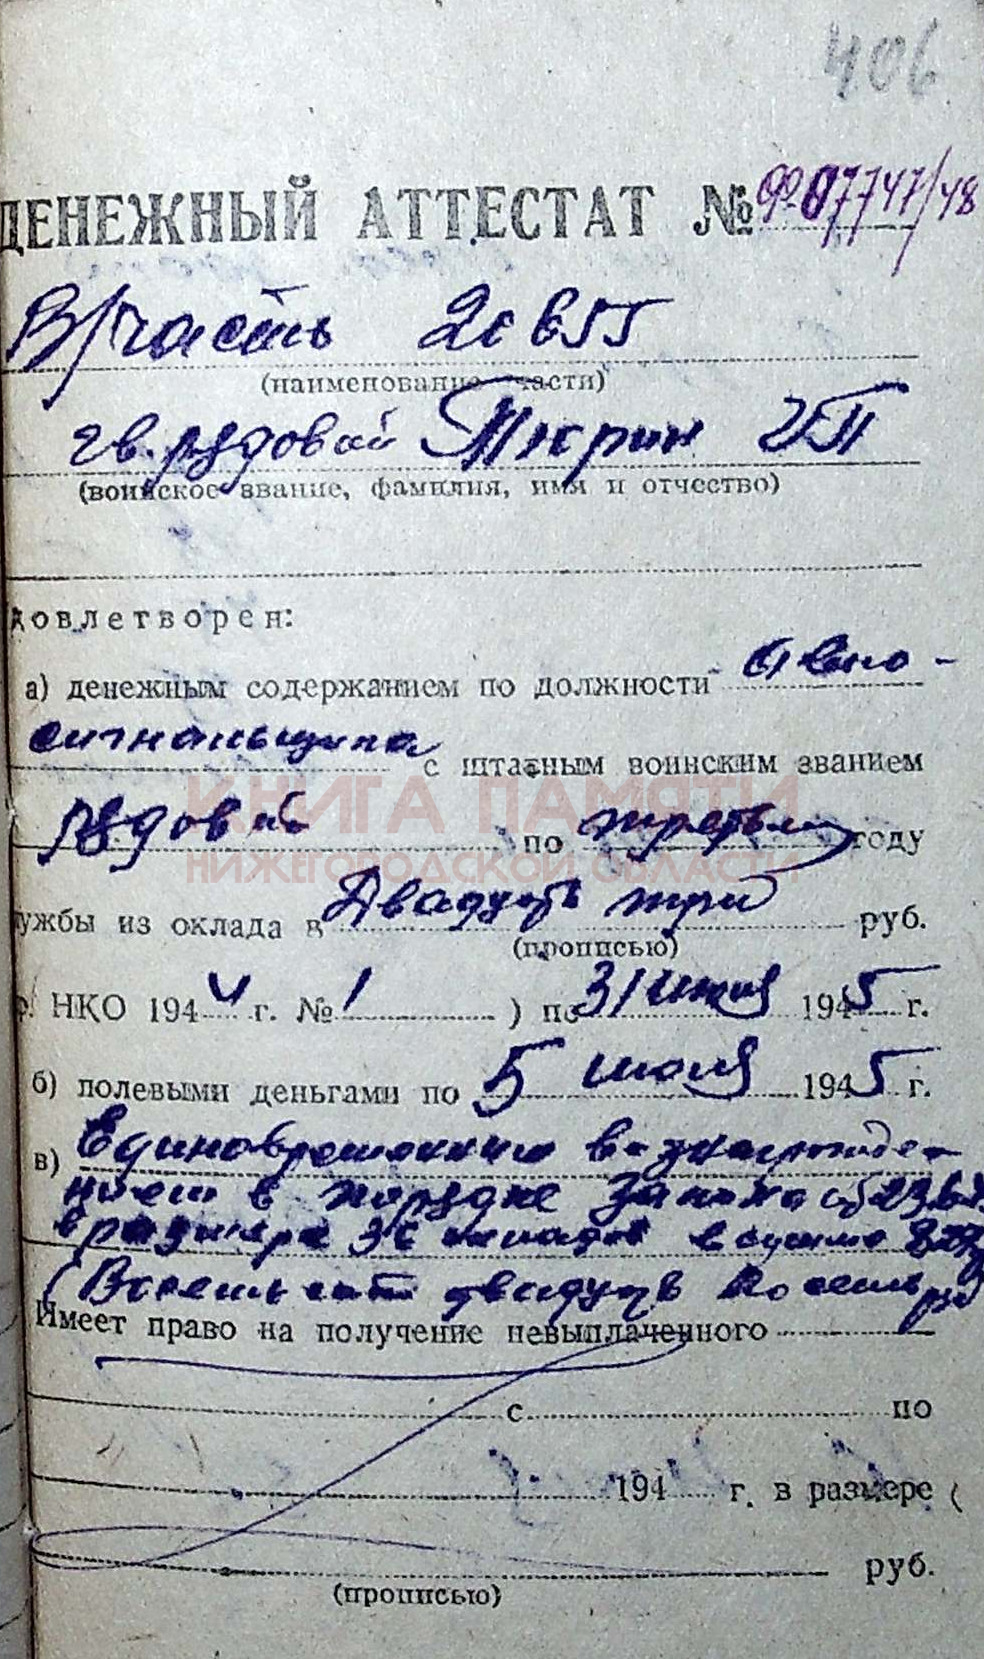 406
ДЕНЕЖНЫЙ АТТЕСТАТ № 07747/48
В/часть
(наименование части)
гв. рядовой Тюрин
(воинское звание, фамилия, имя и отчество)
довлетворен:
а) денежным содержанием по должности
сигнальщика с штатным воинским званием
рядовой по третьему году
ужбы из оклада в Двадцать три руб.
(прописью)
НКО 1944 г. № 1 ) по 31 июля 1945 г.
б) полевыми деньгами по 5 июля 1945 г.
в) Единовременным вознагражде-
нием в порядке Закона от 23
в размере окладов в сумме
(Восемьсот двадцать восемь
Имеет право на получение невыплаченного
с по
194 г. в размере (
руб.
(прописью)
КНИГА ПАМЯТИ
НИЖЕГОРОДСКОЙ ОБЛАСТИ